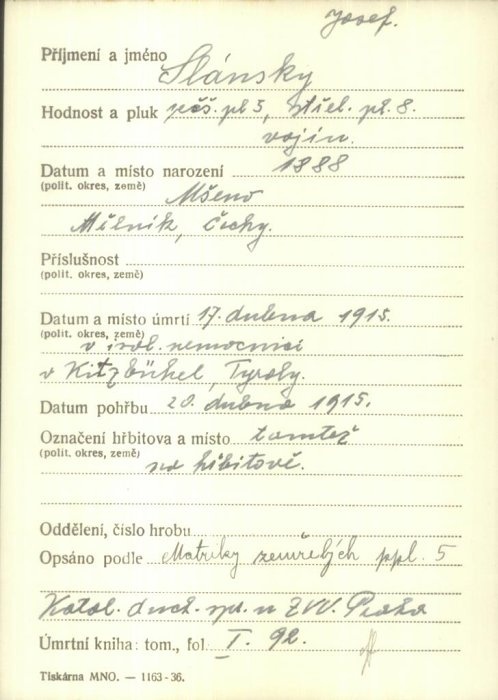 Josef.
Příjmení a jméno Slánsky
Hodnost a pluk pěš. pl 5, střel. pl. 8.
vojín.
Datum a místo narození 1888
(polit. okres, země) Mšeno
Mělník, Čechy.
Příslušnost
(polit. okres, země)
Datum a místo úmrtí 17. dubna 1915.
(polit. okres, země) v isol. nemocnici
v Kitzbühel, Tyroly.
Datum pohřbu 20. dubna 1915.
Označení hřbitova a místo tamtéž
(polit. okres, země) na hřbitově.
Oddělení, číslo hrobu
Opsáno podle Matriky zemřelých ppl. 5
Katol. duch. spr. u ZVV. Praha
Úmrtní kniha: tom., fol. I. 92.
Tiskárna MNO. — 1163-36.